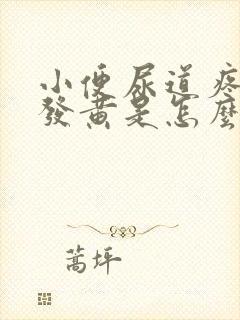 小便尿道疼
發黃是怎麼
蒿坪